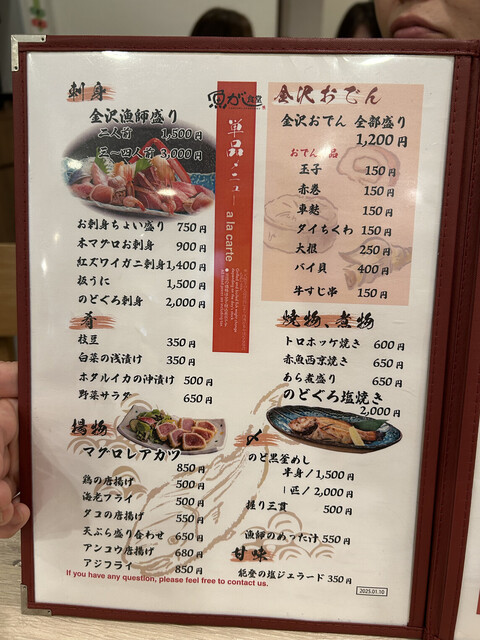 刺身
金沢漁師盛り
二人前 1,500円
三~四人前 3,000円
お刺身ちょい盛り 750円
本マグロお刺身 900円
紅ズワイガニ刺身 1,400円
板うに 1,500円
のどぐろ刺身 2,000円
肴
枝豆 350円
白菜の浅漬け 350円
ホタルイカの沖漬け 500円
野菜サラダ 650円
揚物
マグロレアカツ
850円
鶏の唐揚げ 500円
海老フライ 500円
タコの唐揚げ 550円
天ぷら盛り合わせ 650円
アンコウ唐揚げ 680円
アジフライ 850円
If you have any question, please feel free to contact us.
魚がし食堂
単品メニュー a la carte
金沢おでん
金沢おでん 全部盛り
1,200円
おでん単品
玉子 150円
赤巻 150円
車麩 150円
タイちくわ 150円
大根 250円
バイ貝 400円
牛すじ串 150円
焼物、煮物
トロホッケ焼き 600円
赤魚西京焼き 650円
あら煮盛り 650円
のどぐろ塩焼き
2,000円
〆
のど黒釜めし
半身/1,500円
1匹/2,000円
握り三貫 500円
漁師のめった汁 550円
甘味
能登の塩ジェラード 350円
2025.01.30